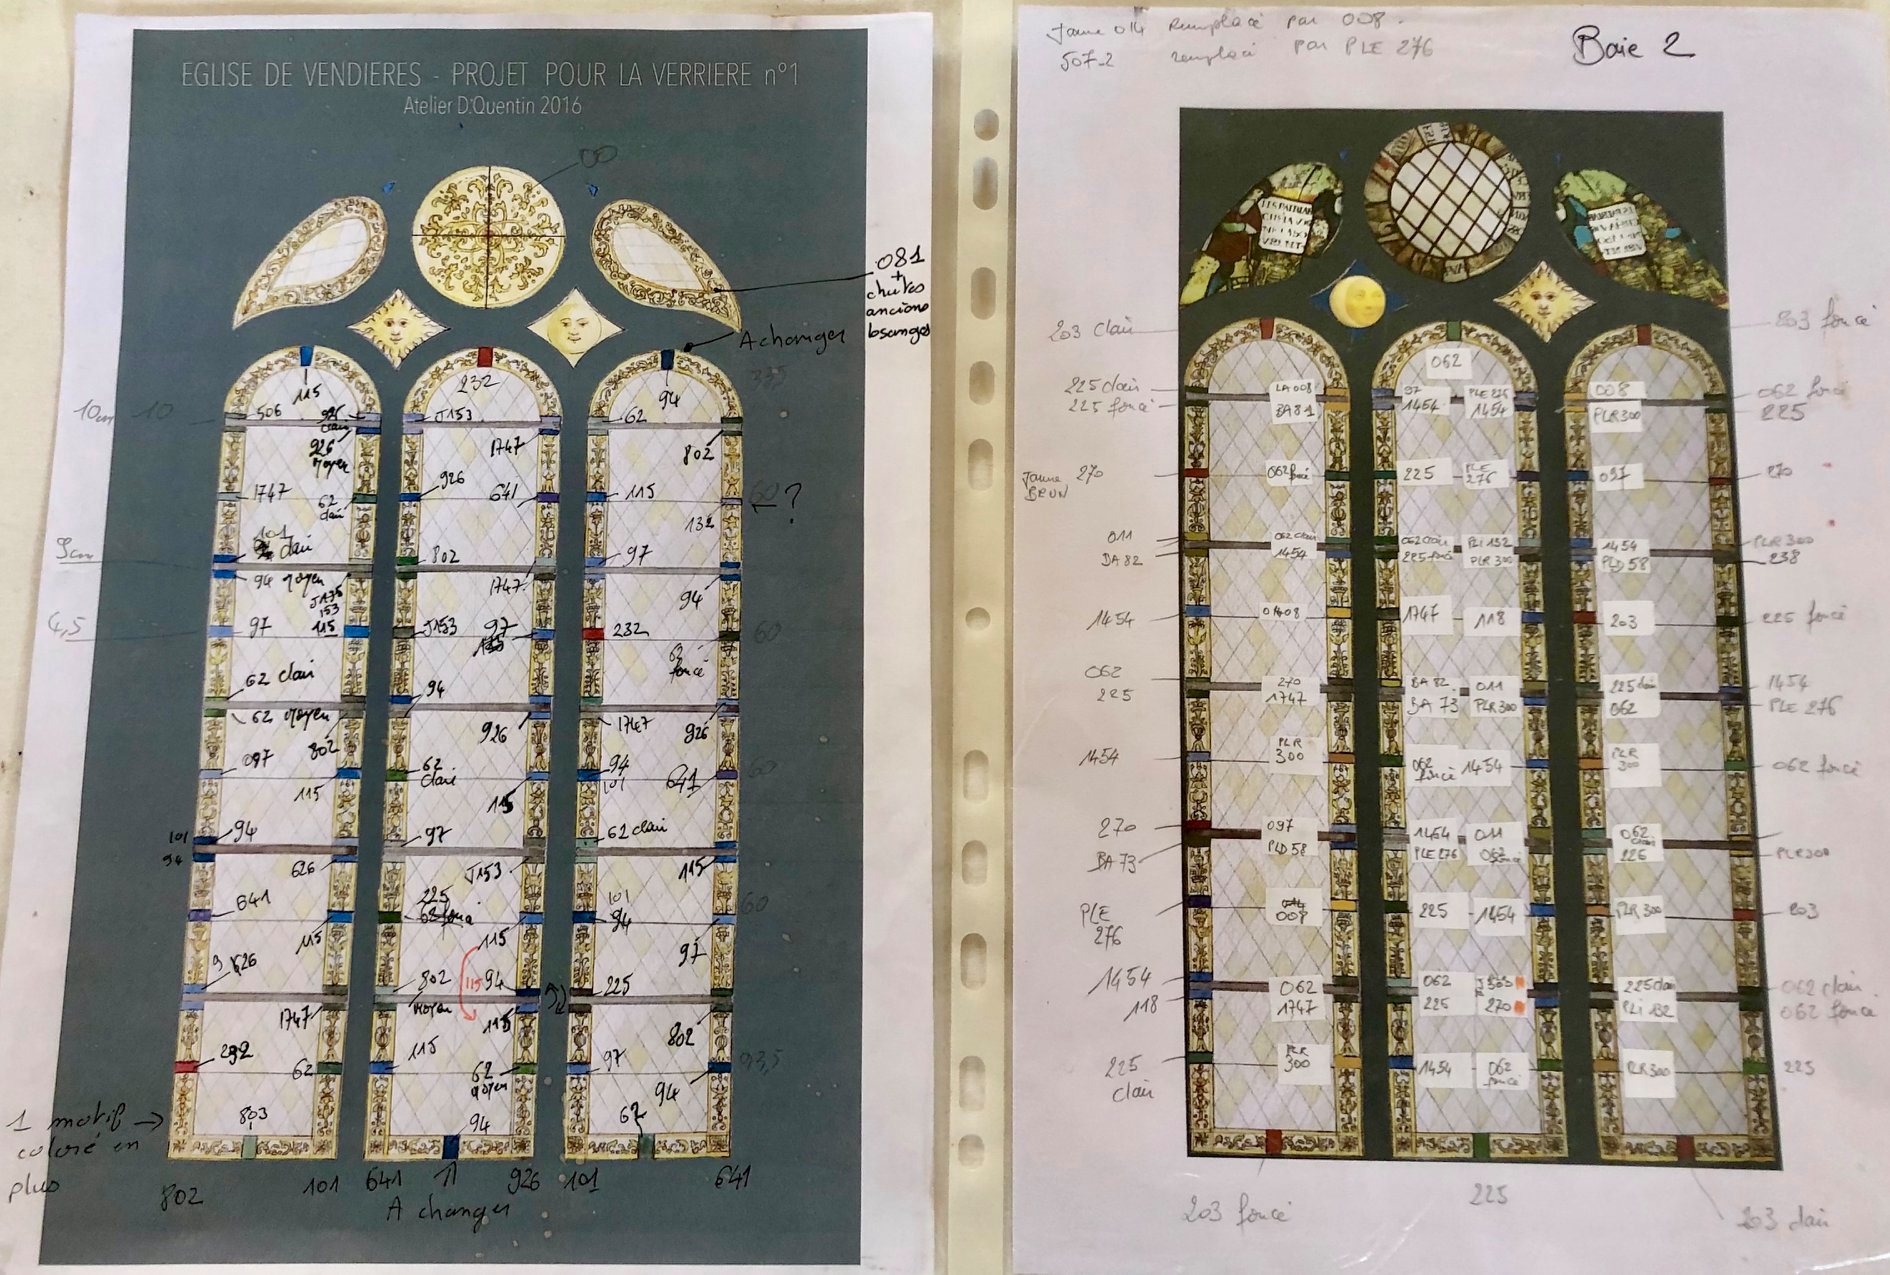 EGLISE DE VENDIERES - PROJET POUR LA VERRIERE n°1
Atelier D.Quentin 2016
00
081
+
chutes
anciens
losanges
A changer
115
232
94
10cm 10
506
J153
62
926
moyen
1747
802
1747
62
clair
926
641
115
60
?
101
clair
132
802
97
94 moyen
1747
94
153
4,5
97
115
J153
97
232
60
62
foncé
62 clair
94
62 moyen
802
926
1747
926
097
62
clair
94
101
641
60
115
115
101
94
94
97
62 clair
626
J153
115
641
225
101
94
60
115
115
97
626
802
moyen
115
94
225
1747
115
802
232
62
115
62
moyen
97
94
93,5
1 motif
coloré en
plus
803
94
62
802
101
641
926
101
641
A changer
Jaune 014 remplacé par 008.
507-2 remplacé par PLE 276
Baie 2
203 clair
203 foncé
062
225 clair
LA 008
97
PLE 276
008
062 foncé
225 foncé
BA 81
1454
1454
PLR 300
225
Jaune
BRUN
270
062 foncé
225
PLE
276
097
270
011
062 clair
062 clair
PLi 132
1454
PLR 300
BA 82
1454
225 foncé
PLR 300
PLD 58
238
1454
1747
118
203
225 foncé
062
270
BA 82
011
225 clair
1454
225
1747
BA 73
PLR 300
062
PLE 276
1454
PLR
300
062
foncé
1454
PLR
300
062 foncé
270
097
1454
011
062
clair
BA 73
PLD 58
PLE 276
062
foncé
225
PLR 300
PLE
276
008
225
1454
PLR 300
203
1454
062
062
225 clair
062 clair
118
1747
225
270
PLi 132
062 foncé
225
clair
PLR
300
1454
062
foncé
PLR 300
225
203 foncé
225
203 clair